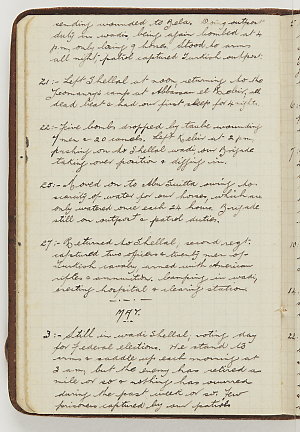 sending wounded to Belah. Doing outpost
duty in wadi being again bombed at 4
p.m. only losing 9 horses. Stood to arms
all night, patrol captured Turkish outpost.
21:- Left Shellal at noon returning to the
camp at Abasan el Kebir, all
dead beat & had our first sleep for 4 nights.
22:- Five bombs dropped by taube wounding
7 men & 20 camels. Left Kebir at 2 pm
pushing on to Shellal wadi our Brigade
taking over position & digging in.
25:- Moved on to Abu owing to
scarcity of water for our horses, which are
only watered once each 24 hours. Brigade
still on outpost & patrol duties.
27:- Returned to Shellal, second regt.
captured two officers & twenty men of
Turkish cavalry armed with American
rifles & ammunition. Camping in wadi,
erecting hospital & clearing station
MAY.
3:- Still in wadi Shellal, voting day
for Federal election. We stand to
arms & saddle up each morning at
3 am, but the enemy has retired a
mile or so & nothing has occurred
during the past week or so. Few
prisoners captured by our patrols